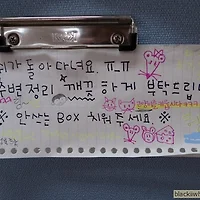 쥐가 돌아다녀요. ㅠ_ㅠ
주변정리 깨끗하게 부탁드립니
※ 안쓰는 BOX 치워주세요 ※